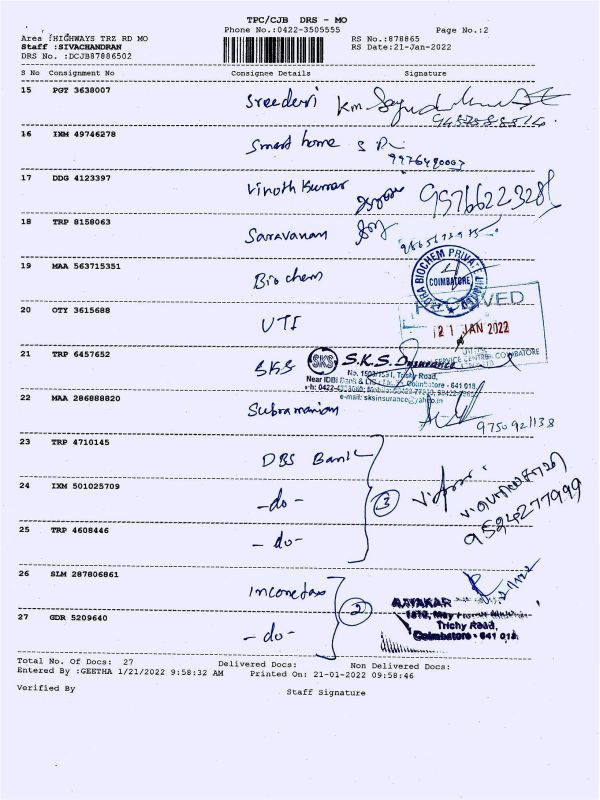 TPC/CJB DRS - MO
Phone No.:0422-3505555 Page No.:2
Area :HIGHWAYS TRZ RD MO RS No.:878865
Staff :SIVACHANDRAN RS Date:21-Jan-2022
DRS No. :DCJB87886502
S No Consignment No Consignee Details Signature
15 PGT 3638007 Sreedevi
16 IXM 49746278 Smart home
17 DDG 4123397 Vinoth Kumar
18 TRP 8158063 Saravanan
19 MAA 563715351 Biochem
BIOCHEM PRIVATE
COIMBATORE
20 OTY 3615688 UTI
21 JAN 2022
SERVICE CENTRE COIMBATORE
21 TRP 6457652 SKS
SKS S.K.S. Insurance
Trichy Road,
Near IDBI Bank & Coimbatore - 641 018.
e-mail: sksinsurance@yahoo.in
22 MAA 286888820 Subramanian
9750921138
23 TRP 4710145 DBS Bank
24 IXM 501025709 -do- 3
9594277999
25 TRP 4608446 -do-
26 SLM 287806861 Incometax
2
AAYAKAR
Trichy Road,
Coimbatore - 641 018.
27 GDR 5209640 -do-
Total No. Of Docs: 27 Delivered Docs: Non Delivered Docs:
Entered By :GEETHA 1/21/2022 9:58:32 AM Printed On: 21-01-2022 09:58:46
Verified By Staff Signature